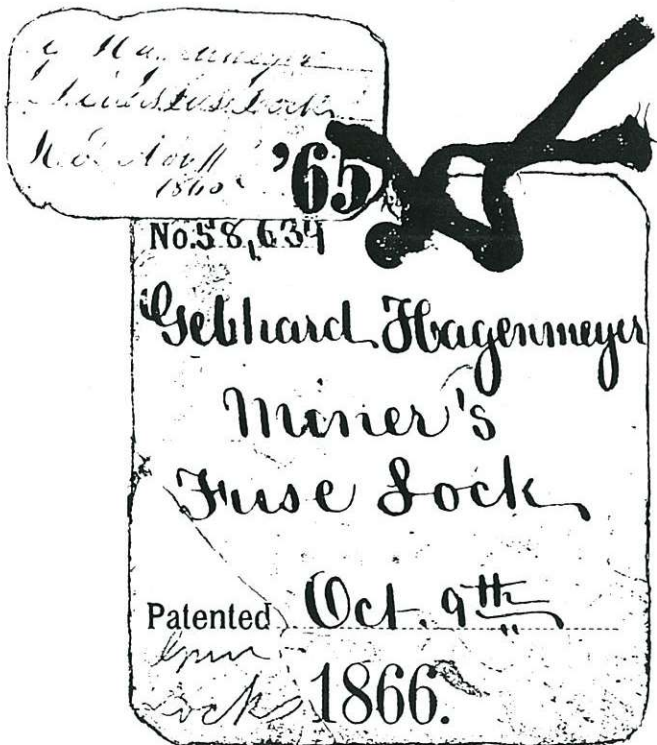 G Hagenmeyer
Miners Fuse Lock
Nov 11
1865
'65
No. 58,634
Gebhard Hagenmeyer
Miner's
Fuse Lock
Patented Oct. 9th
Lock 1866.